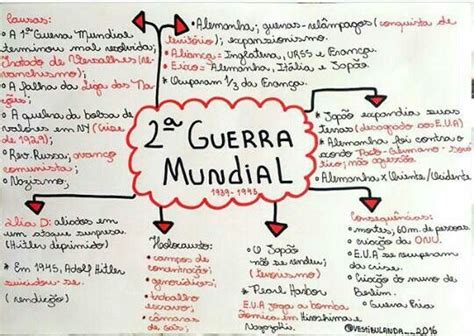 Causas:
• A 1ª Guerra Mundial
terminou mal resolvida;
Tratado de Versalhes (re-
vanchismo);
• A falha da Liga das Na-
ções;
• A quebra da bolsa de
valores em NY (Crise
de 1929);
• Rev. Russa; avanço
comunista;
• Nazismo;
• Alemanha; guerras-relâmpagos (conquista de
território); expansionismo.
• Aliança = Inglaterra, URSS e França.
• Eixo = Alemanha, Itália e Japão
* Ocuparam 1/3 da França.
2ª GUERRA
MUNDIAL
1939-1945
* Japão expandia suas
terras (desagrado aos E.U.A)
* Alemanha foi contra o
acordo Pacto-Germano-
tico; não agressão
• Alemanha x Oriente/Ocidente
Dia D: aliados em
um ataque surpresa.
(Hitler deprimido)
* Em 1945, Adolf Hitler
suicidou-se.
(rendição)
Holocausto:
• campos de
concentração;
• genocídios;
• trabalho
escravo;
• câmaras
de gás;
• O Japão
não se rendeu;
(terrorismo)
* Pearl Harbor
E.U.A joga a bomba
atômica em Hiroshima e
Nagasaki.
Consequências:
• mortes, 60m de pessoas
• criação da ONU.
• E.U.A se recuperam
da crise.
• Criação do muro de
Berlim.
• Guerra Fria
@VESTIBULANDA__2016